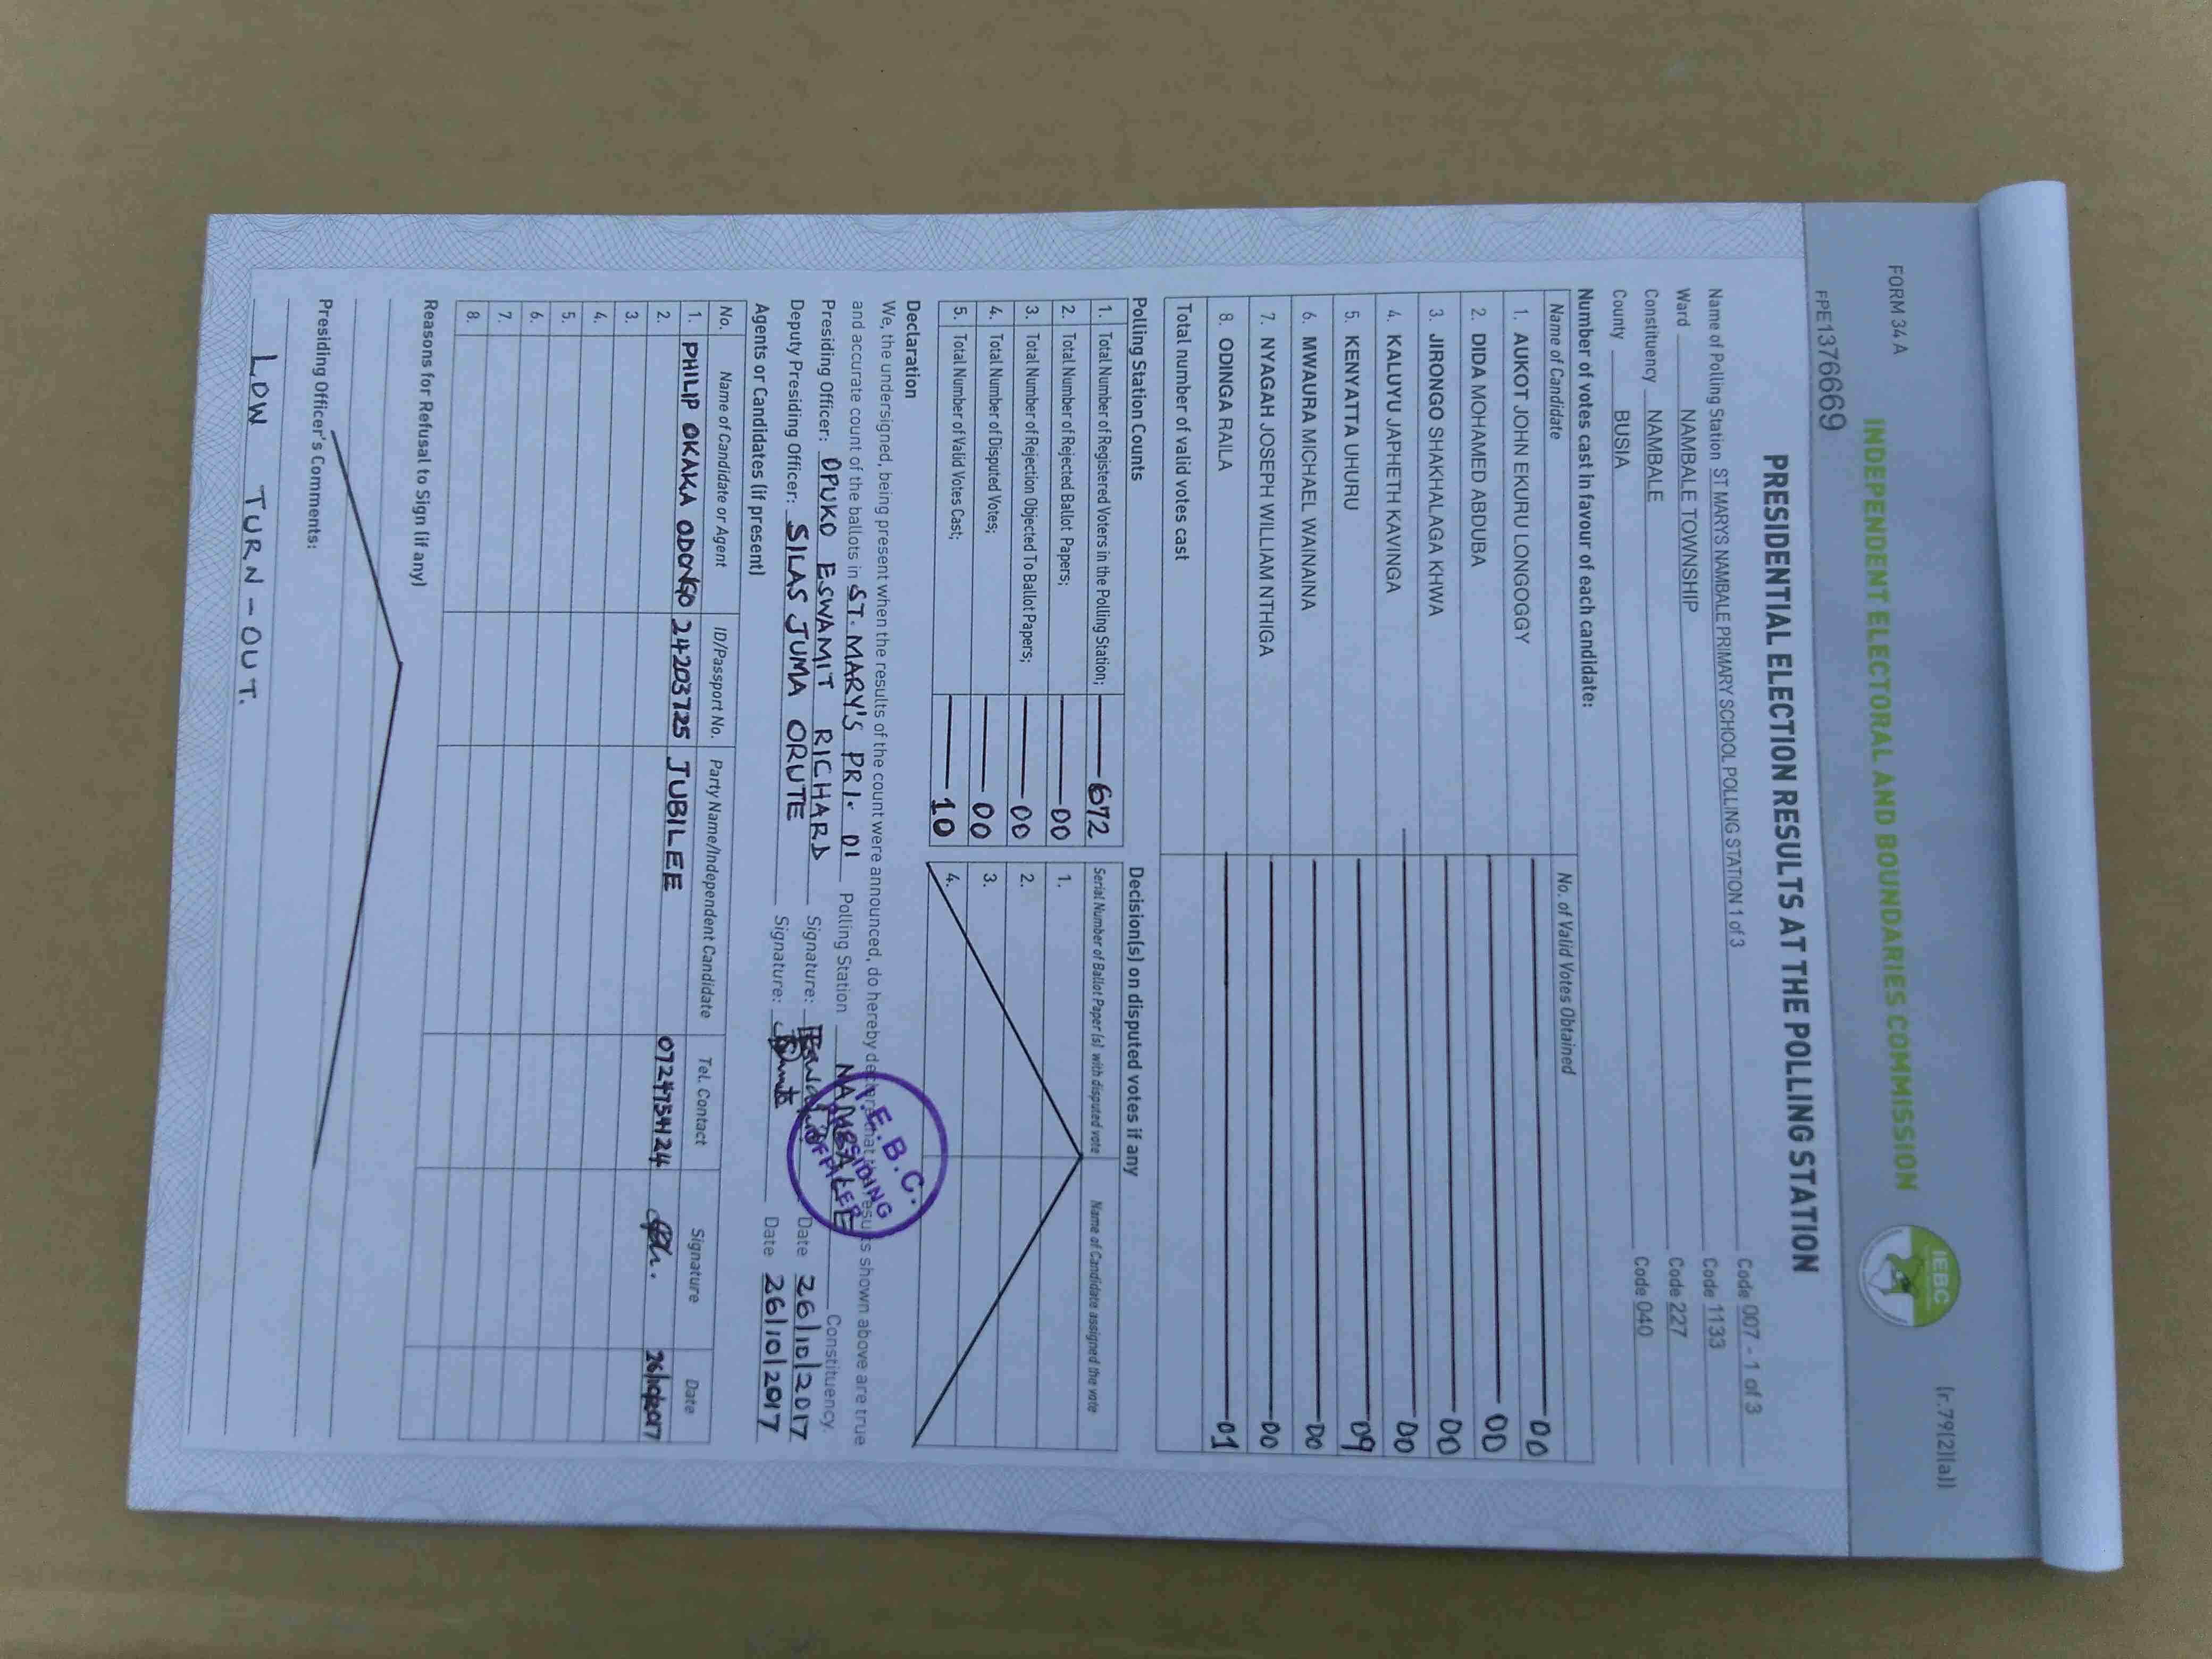 FORM 34 A
(r.79(2)(a))
INDEPENDENT ELECTORAL AND BOUNDARIES COMMISSION
IEBC
FPE1376669
PRESIDENTIAL ELECTION RESULTS AT THE POLLING STATION
Name of Polling Station ST MARYS NAMBALE PRIMARY SCHOOL POLLING STATION 1 of 3 Code 007 - 1 of 3
Ward NAMBALE TOWNSHIP Code 1133
Constituency NAMBALE Code 227
County BUSIA Code 040
Number of votes cast in favour of each candidate:
Name of Candidate No. of Valid Votes Obtained
1. AUKOT JOHN EKURU LONGOGGY 00
2. DIDA MOHAMED ABDUBA 00
3. JIRONGO SHAKHALAGA KHWA 00
4. KALUYU JAPHETH KAVINGA 00
5. KENYATTA UHURU 09
6. MWAURA MICHAEL WAINAINA 00
7. NYAGAH JOSEPH WILLIAM NTHIGA 00
8. ODINGA RAILA 01
Total number of valid votes cast
Polling Station Counts
1. Total Number of Registered Voters in the Polling Station; 672
2. Total Number of Rejected Ballot Papers; 00
3. Total Number of Rejection Objected To Ballot Papers; 00
4. Total Number of Disputed Votes; 00
5. Total Number of Valid Votes Cast; 10
Decision(s) on disputed votes if any
Serial Number of Ballot Paper(s) with disputed vote Name of Candidate assigned the vote
1.
2.
3.
4.
Declaration
We, the undersigned, being present when the results of the count were announced, do hereby declare that the results shown above are true
and accurate count of the ballots in ST. MARY'S PRI. 01 Polling Station NAMBALE Constituency.
Presiding Officer: OPUKO ESWAMIT RICHARD Signature: Date 26/10/2017
Deputy Presiding Officer: SILAS JUMA ORUTE Signature: Date 26/10/2017
I.E.B.C.
PRESIDING
OFFICER
Agents or Candidates (if present)
No. Name of Candidate or Agent ID/Passport No. Party Name/Independent Candidate Tel. Contact Signature Date
1. PHILIP OKAKA ODONGO 24203725 JUBILEE 0724754124 26/10/2017
2.
3.
4.
5.
6.
7.
8.
Reasons for Refusal to Sign (if any)
Presiding Officer's Comments:
LOW TURN-OUT.